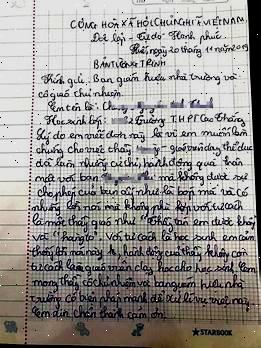 CỘNG HÒA XÃ HỘI CHỦ NGHĨA VIỆT NAM
Độc lập - Tự do - Hạnh phúc
Huế, ngày 20 tháng 11 năm 2019
BẢN TƯỜNG TRÌNH
Kính gửi: Ban giám hiệu nhà trường và
cô giáo chủ nhiệm.
Em tên là:
Học sinh lớp: Trường THPT Cao Thắng
Lý do em viết đơn này là vì em muốn làm
chứng cho việc thầy giáo viên dạy thể dục
đã làm những cử chỉ, hành động quá thân
mật với bạn mà không được sự
cho phép của bạn ấy như là bóp má và có
những lời nói mà không phù hợp với tư cách
là một thầy giáo như "Thầy tán em được không"
và "hang to". Với tư cách là học sinh em cảm
thấy lời nói này và hành động của thầy không còn
tư cách làm giáo viên dạy học cho học sinh. Em
mong thầy cô chủ nhiệm và ban giám hiệu nhà
trường có biện pháp mạnh để xử lí vụ việc này.
Em xin chân thành cảm ơn.
STARBOOK